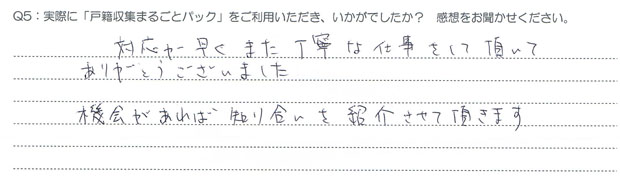 Q5：実際に「戸籍収集まるごとパック」をご利用いただき、いかがでしたか？ 感想をお聞かせください。
対応が早くまた丁寧な仕事をして頂いて
ありがとうございました
機会があれば知り合いを紹介させて頂きます